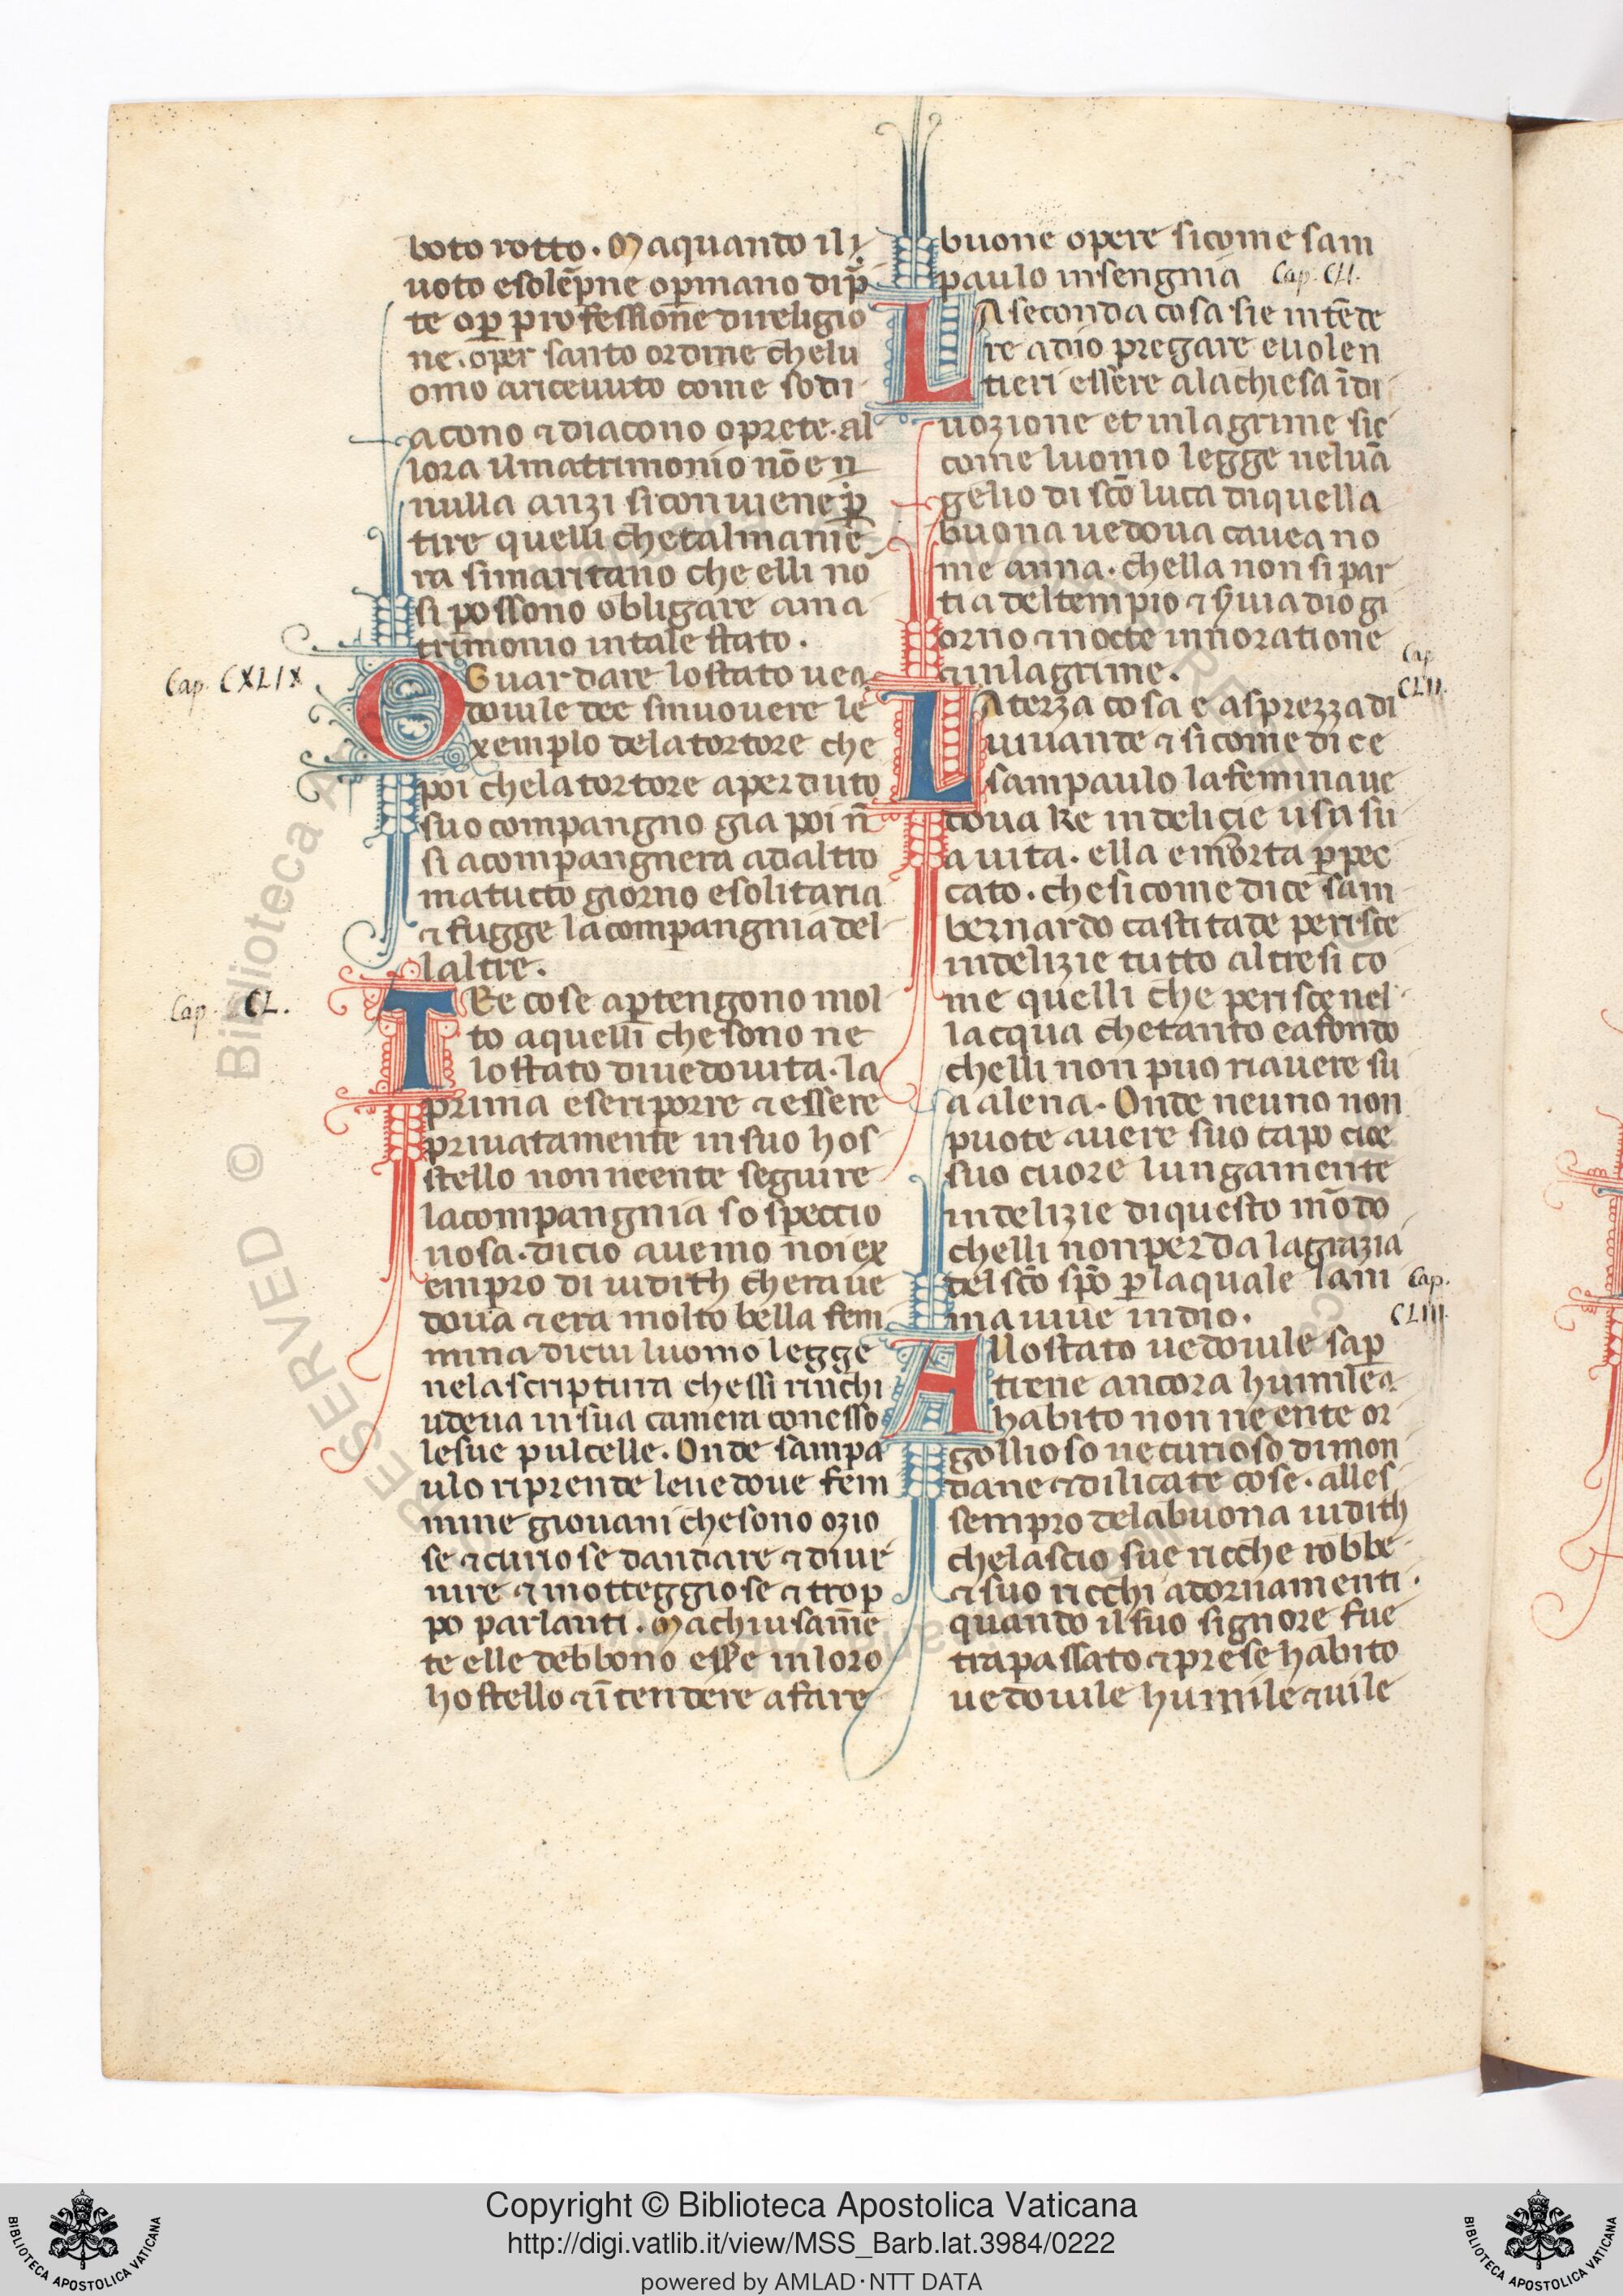 boto rotto. Maquando il
uoto esolēpne oꝑmano dip̄
te oꝑ professione direligio
ne. oper santo ordine chelu
omo aricevuto come sodi
acono ⁊ diacono oprete. al
lora ilmatrimonio nō en
nulla anzi siconuiene ꝑ
tire quelli chetalmanie
ra simaritano che elli nō
si possono obligare ama
trimonio intale stato.
Cap. CXLIX
O Guardare lostato uea
douile dee smuouere le
xemplo delatortore che
poi chela tortore aperduto
suo compangno gia poi n̄
si acompangnera adaltro
matutto giorno esolitaria
⁊ fugge lacompangnia del
laltre.
Cap. CL.
TRe cose aꝑtengono mol
to aquelli che sono ne
lo stato diuedouita. la
prima eseriporre ⁊ essere
priuatamente insuo hos
stello nonneente seguire
lacompangnia sospeccio
nosa. dicio auemo noi ex
empro di iudith cheraue
doua ⁊ era molto bella fem
mina dicui luomo legge
nelascriptura chessi rinchi
udeua insua camera conesso
lesue pulcelle. Onde sampa
ulo riprende leuedoue fem
mine giouani chesono ozio
se ⁊ curiose dandare ⁊ diue
nire ⁊ motteggiose ⁊ trop
po parlanti. Machiusame
te elle debbono esse inloro
hostello ⁊ ītendere afare
buone opere sicome sam
paulo insengnia Cap. CLI.
LA seconda cosa sie intēde
re adio pregare euolen
tieri essere alachiesa īdi
uozione et inlagrime sie
come luomo legge neluā
gelio di sc̄o luca diquella
buona uedoua cauea no
me anna. chella non si par
tia deltempio ⁊ s̄uia dio gi
orno ⁊ nocte innoratione
⁊ inlagrime.
Cap
CLII.
LA terza cosa e asprezza di
uiuande ⁊ sicome dice
sampaulo lafemina ue
doua ke in delicie usa su
a uita. ella emorta ꝑ pec
cato. che sicome dice sam
bernardo castitade perisce
indelizie tutto altresi co
me quelli che perisce nel
lacqua chetanto eafondo
chelli non puo riauere su
a alena. Onde neuno non
puote auere suo capo cioe
suo cuore lungamente
indelizie diquesto mōdo
chelli nonperda lagrazia
del sc̄o sp̄o ꝑ laquale lani
ma uiue indio.
Cap.
CLIII.
Allostato uedouile saꝑ
tiene ancora humilea
habito non neente or
gollioso necurioso dimon
dane ⁊ dilicate cose. alles
sempro delabuona iudith
chelascio sue ricche robbe
⁊ suo ricchi adornamenti.
quando il suo signore fue
trapassato ⁊ prese habito
uedouile humile ⁊ uile
Copyright © Biblioteca Apostolica Vaticana
http://digi.vatlib.it/view/MSS_Barb.lat.3984/0222
powered by AMLAD·NTT DATA
BIBLIOTECA APOSTOLICA VATICANA
BIBLIOTECA APOSTOLICA VATICANA